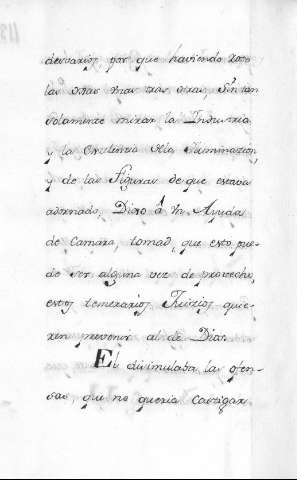 desvarios, por que haviendo
las Ojas unas tras otras, Sin tan
solamente mirar la Industria
y la Iluminacion,
y de las Figuras de que estava
adornado, Dixo â Un Ayuda
de Camara, tomad, que esto pue-
de ser alguna vez de provecho,
estos temerarios Juizios quie-
ren prevenir al de Dios.
El disimulaba las ofen-
sas, que no queria Castigar